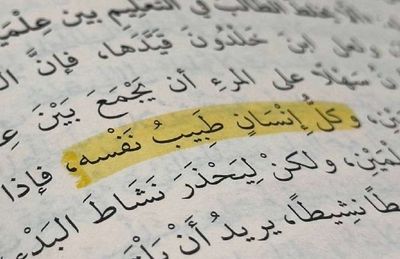 الطالب في التعليم بين عِلْمَيْنِ
ابنَ خَلْدُونَ قَيَّدَهَا، فَإِنَّ
سَهْلًا على المرءِ أن يَجْمَعَ بَيْنَ
وَكلُّ إِنْسَانٍ طَبِيبُ نَفْسِه، فإذا
ولكنْ لِيَحْذَرَ نَشَاطَ البَدْءِ
نَشِيطاً، يريدُ أَنْ